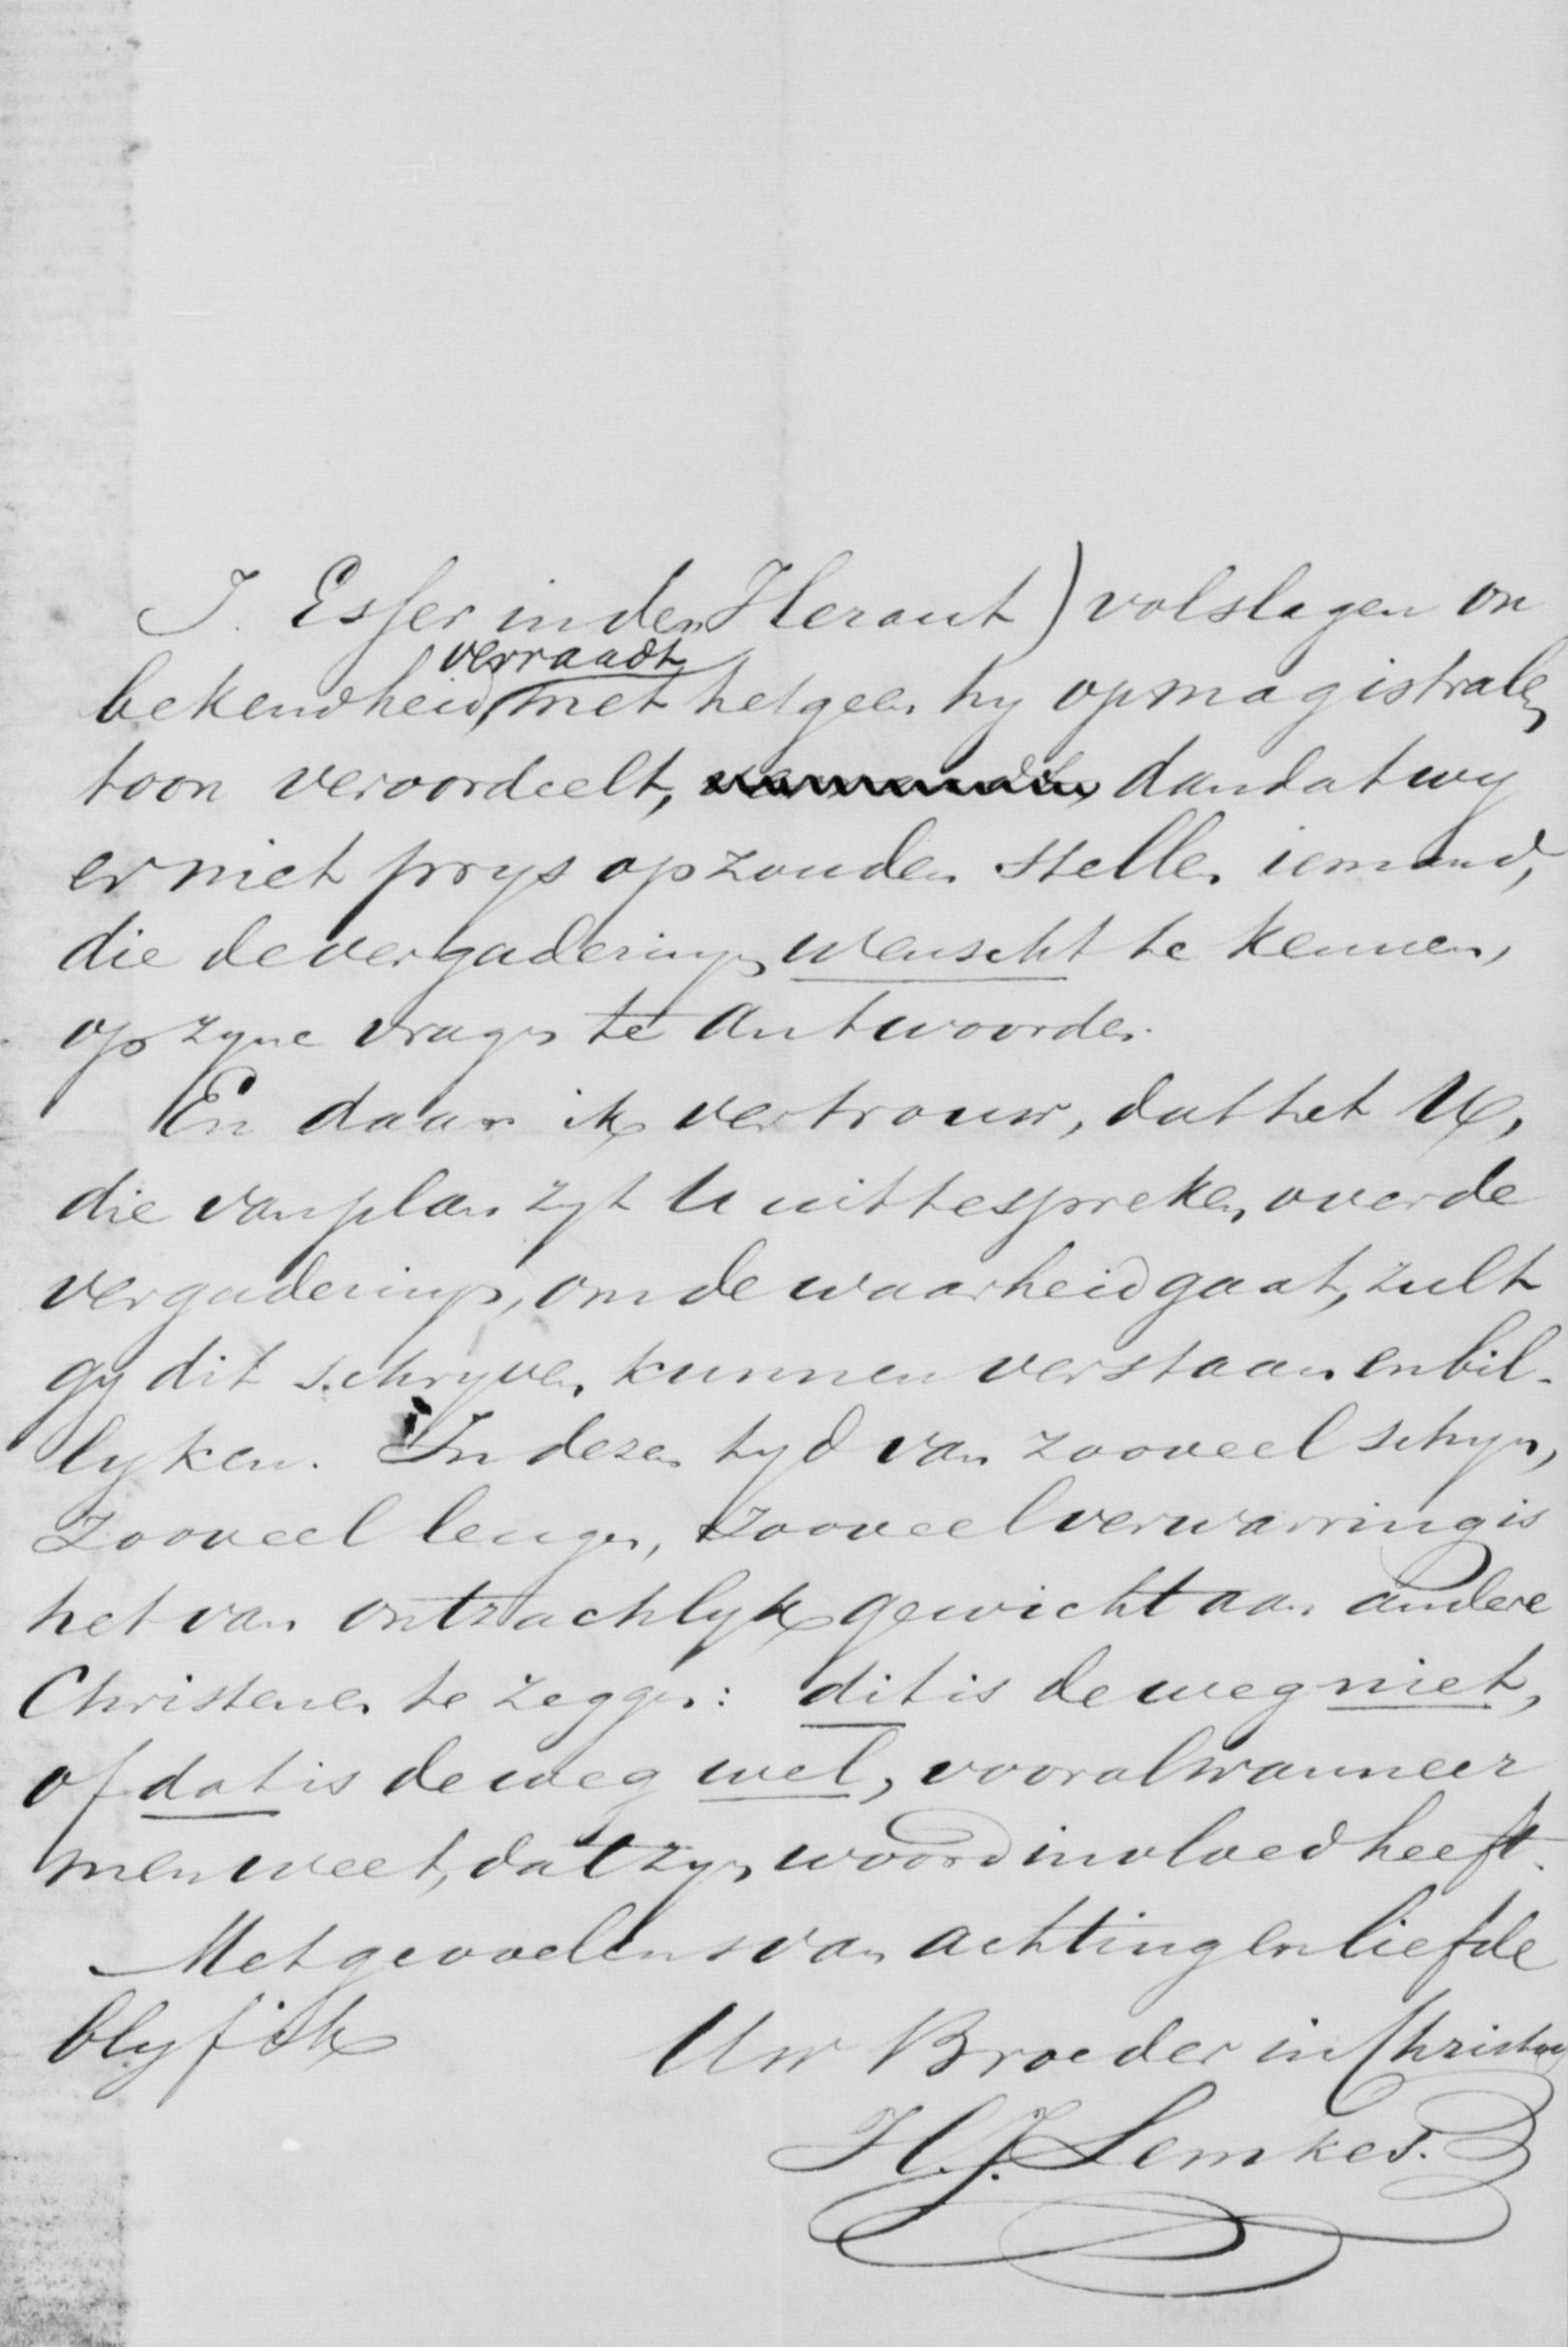 J. Esser in den Heraut) volslagen on
verraadt
bekendheid, met hetgeen hy op magistralen
toon veroordeelt, dan dat wy
er niet prys op zouden stellen iemand,
die de vergadering wenscht te kennen,
op zyne vragen te antwoorden.
En daar ik vertrouw, dat het U,
die van plan zyt U uittespreken over de
vergadering, om de waarheid gaat, zult
gy dit schryven kunnen verstaan en bil-
lyken. In dezen tyd van zooveel schyn,
zooveel leugen, zooveel verwarring is
het van ontzachlyk gewicht aan andere
Christenen te zeggen: dit is de weg niet,
of dat is de weg wel, vooral wanneer
men weet, dat zyn woord invloed heeft.
Met gevoelens van achting en liefde
blyf ik Uw Broeder in Christus
H.J. Lemkes.